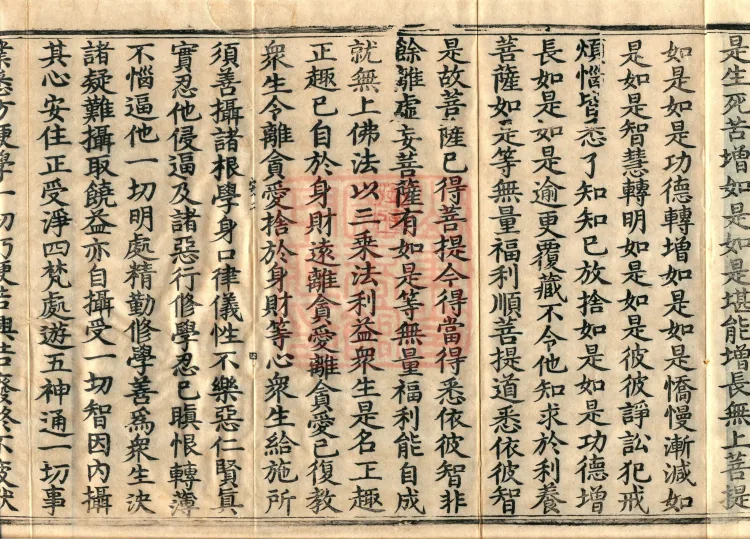 是生死苦增如是如是堪能增長無上菩提
如是如是功德轉增如是如是憍慢漸減如
是如是智慧轉明如是如是彼彼諍訟犯戒
煩惱皆悉了知知已放捨如是如是功德增
長如是如是逾更覆藏不令他知求於利養
菩薩如是等無量福利順菩提道悉依彼智
是故菩薩已得菩提今得當得悉依彼智非
餘離虛妄菩薩有如是等無量福利能自成
就無上佛法以三乘法利益衆生是名正趣
正趣已自於身財遠離貪愛離貪愛已復教
衆生令離貪愛捨於身財等心衆生給施所
須善攝諸根學身口律儀性不樂惡仁賢真
實忍他侵逼及諸惡行修學忍已瞋恨轉薄
不惱逼他一切明處精勤修學善爲衆生決
諸疑難攝取饒益亦自攝受一切智因內攝
其心安住正受淨四梵處遊五神通一切事
業悉方便學一切巧便